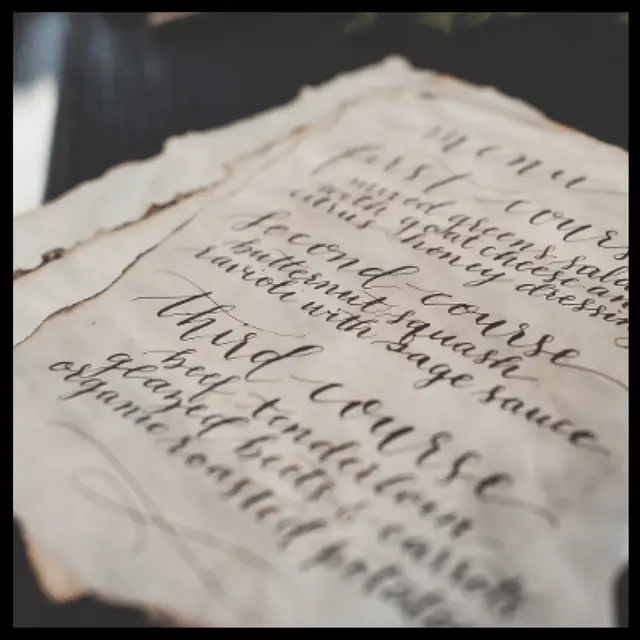 menu
first cours
mixed greens sala
with goat cheese an
citrus honey dressin
second course
butternut squash
ravioli with sage sauce
third course
beef tenderloin
geazed beets & carrots
organic roasted potatoes